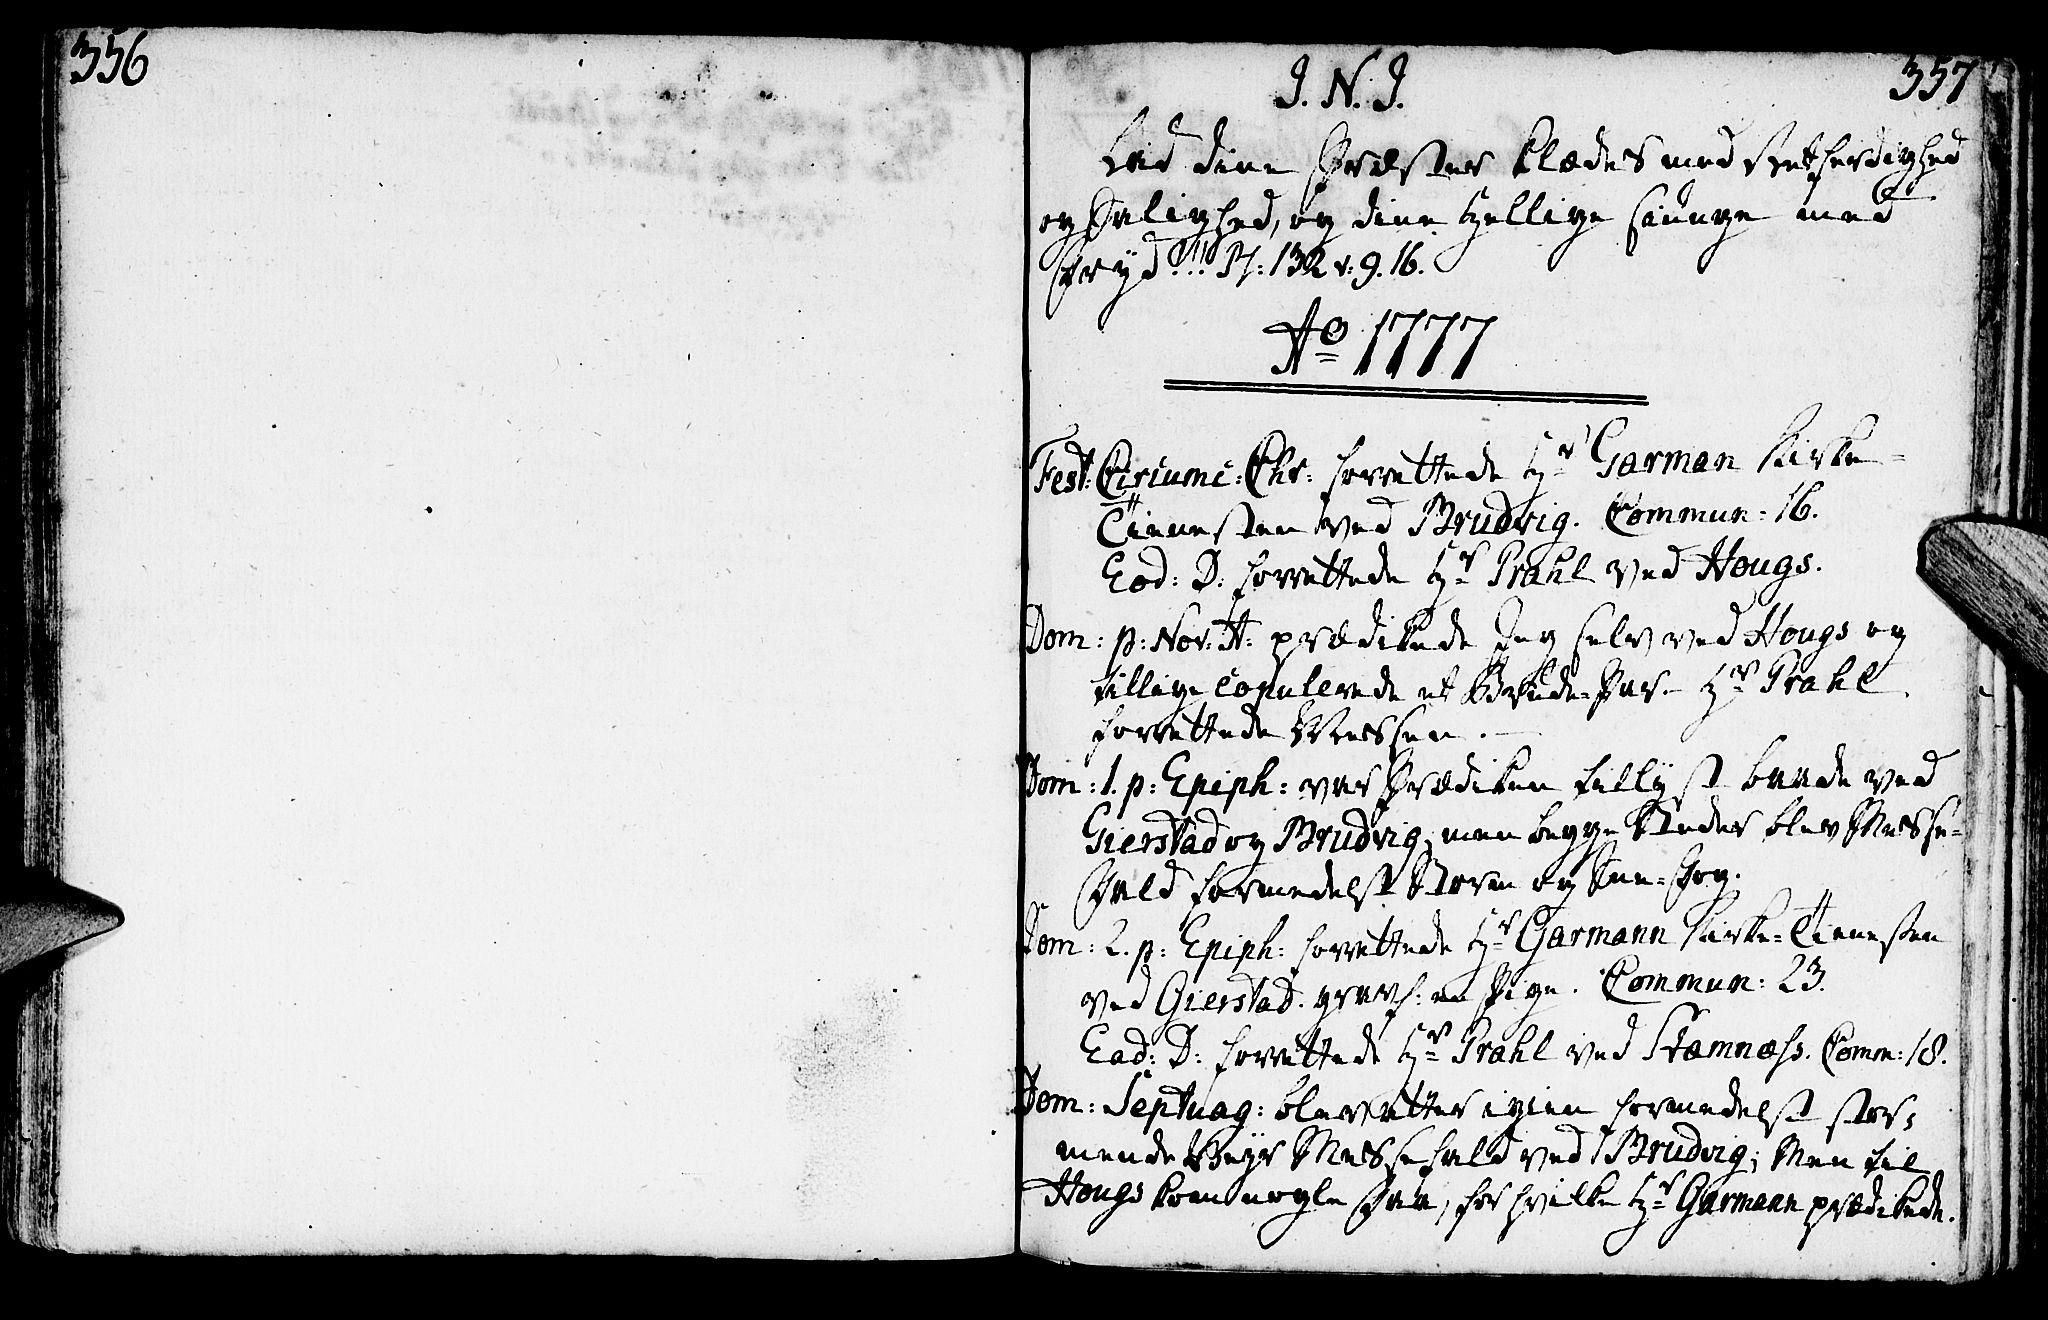 356
357
J. N. J.
Lad dine Præster klædes med Retferdighed
og Salighed, og dine Hellige siunge med
Fryd!!! Ps: 132 v: 9. 16.
Ao 1777
Fest: Circumc: Chr: forrettede Hr Garman Kirke-
Tienesten ved Brudvig. Commun: 16.
Eod: D: forrettede Hr Prahl ved Hougs.
Dom: p: Nov: A: prædikede Jeg selv ved Hougs og
tillige copulerede et Brude-Par. Hr Prahl
forrettede Messen.
Dom: 1. p: Epiph: var Prædiken tillyst baade ved
Gierstad og Brudvig, men begge Steder blev Messe-
Fald formedelst Storm og Snee-Fog.
Dom: 2. p: Epiph: forrettede Hr Garmann Kirke-Tienesten
ved Gierstad. gravf: en Pige. Commun: 23.
Ead: D: forrettede Hr Prahl ved Stamnæss. Comm: 18.
Dom: Septuag: blev atter igien formedelst stor-
mende Veyr Messefald ved Brudvig; Men til
Hougs kom nogle Faa, for hvilke Hr Garmann prædikede.